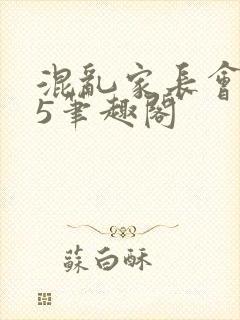 混亂家長會
5筆趣閣
蘇白酥